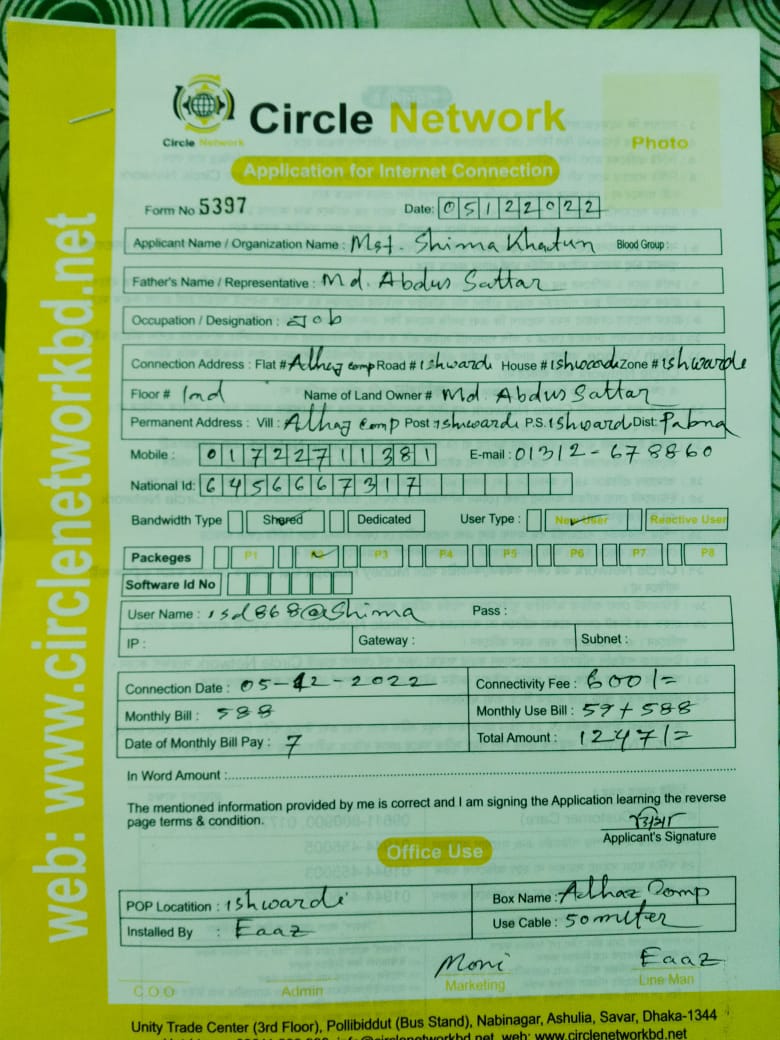 Circle Network
Circle Network
Photo
Application for Internet Connection
Form No 5397 Date: 05122022
Applicant Name / Organization Name : Mst. Shima Khatun Blood Group :
Father's Name / Representative : Md. Abdus Sattar
Occupation / Designation : Job
Connection Address : Flat # Alhaz comp Road # Ishwardi House # Ishwardi Zone # Ishwardi
Floor # Ind Name of Land Owner # Md. Abdus Sattar
Permanent Address : Vill : Alhaz comp Post Ishwardi P.S. Ishwardi Dist: Pabna
Mobile : 01722711381 E-mail : 01312-678860
National Id: 6456667317
Bandwidth Type Shared Dedicated User Type : New User Reactive User
Packeges P1 P2 P3 P4 P5 P6 P7 P8
Software Id No
User Name : isd868@Shima Pass :
IP : Gateway : Subnet :
Connection Date : 05-12-2022 Connectivity Fee : 600/=
Monthly Bill : 588 Monthly Use Bill : 59+588
Date of Monthly Bill Pay : 7 Total Amount : 1247/=
In Word Amount :
The mentioned information provided by me is correct and I am signing the Application learning the reverse
page terms & condition.
Applicant's Signature
Office Use
POP Locatition : Ishwardi Box Name : Alhaz Comp
Installed By : Eaaz Use Cable : 50 miter
Moni Eaaz
C.O.O Admin Marketing Line Man
Unity Trade Center (3rd Floor), Pollibiddut (Bus Stand), Nabinagar, Ashulia, Savar, Dhaka-1344
web: www.circlenetworkbd.net
web: www.circlenetworkbd.net